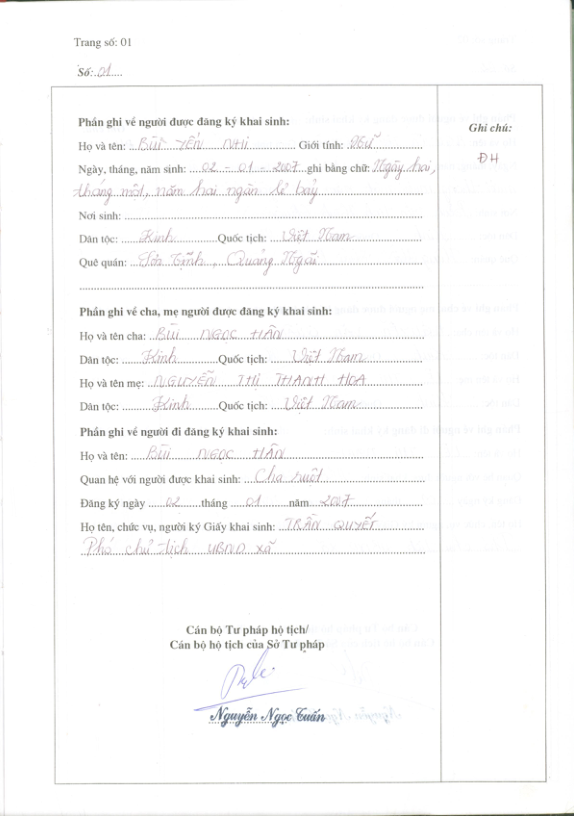 Trang số: 01
Số: 01
Phần ghi về người được đăng ký khai sinh:
Ghi chú:
Họ và tên: BÙI YẾN NHI Giới tính: Nữ
ĐH
Ngày, tháng, năm sinh: 02 - 01 - 2007 ghi bằng chữ: Ngày hai,
tháng một, năm hai ngàn lẻ bảy
Nơi sinh:
Dân tộc: Kinh Quốc tịch: Việt Nam
Quê quán: Tịnh, Quảng Ngãi
Phần ghi về cha, mẹ người được đăng ký khai sinh:
Họ và tên cha: BÙI NGỌC HÂN
Dân tộc: Kinh Quốc tịch: Việt Nam
Họ và tên mẹ: NGUYỄN THỊ THANH HOA
Dân tộc: Kinh Quốc tịch: Việt Nam
Phần ghi về người đi đăng ký khai sinh:
Họ và tên: BÙI NGỌC HÂN
Quan hệ với người được khai sinh: Cha ruột
Đăng ký ngày 02 tháng 01 năm 2007
Họ tên, chức vụ, người ký Giấy khai sinh: TRẦN QUYẾT
Phó chủ tịch UBND xã
Cán bộ Tư pháp hộ tịch/
Cán bộ hộ tịch của Sở Tư pháp
Nguyễn Ngọc Tuấn